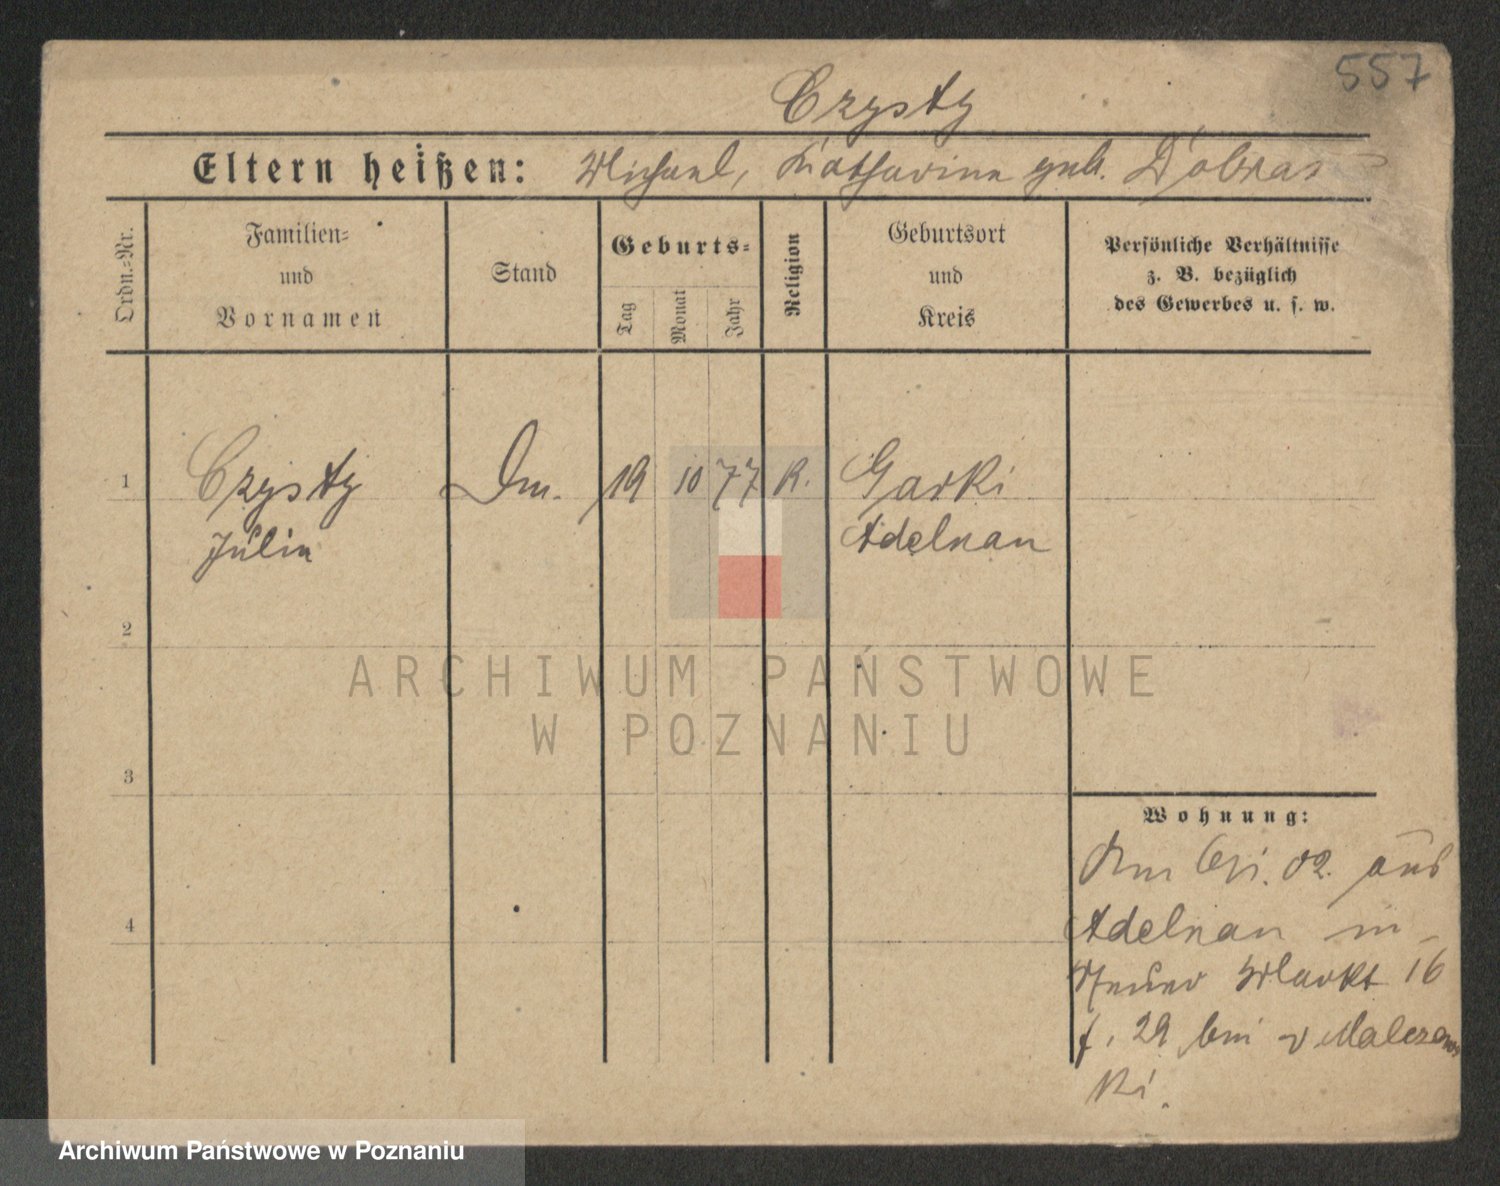 557
Czysty
Eltern heißen: Michael, Katharina geb. Dobras
Ordn.-Nr.
Familien-
und
Vornamen
Stand
Geburts-
Tag
Monat
Jahr
Religion
Geburtsort
und
Kreis
Persönliche Verhältnisse
z. B. bezüglich
des Gewerbes u. s. w.
1 Czysty 19 10 77 K. Garki
Julia Adelnau
2
3
4
Wohnung:
02. aus
Adelnau in
Neuer Markt 16
f. 29 bei v Malczews
ki.
ARCHIWUM PAŃSTWOWE
W POZNANIU
Archiwum Państwowe w Poznaniu